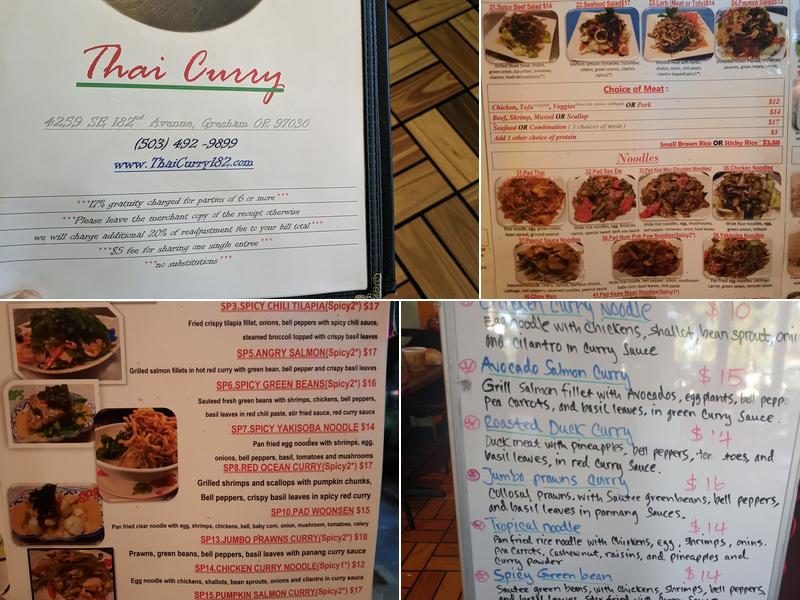 Thai Curry
4259 SE 182nd Avenue, Gresham OR 97030
(503) 492 -9899
www.ThaiCurry182.com
***17% gratuity charged for parties of 6 or more ***
***Please leave the merchant copy of the receipt otherwise
we will charge additional 20% of readjustment fee to your bill total***
***$5 fee for sharing one single entree***
***no substitutions***
21.Spicy Beef Salad $14
22.Seafood Salad $17
23.Larb (Meat or Tofu)$14
24.Papaya Salad$12
Choice of Meat :
Chicken, Tofu, Veggies OR Pork $12
Beef, Shrimp, Mussel OR Scallop $14
Seafood OR Combination ( 3 choices of meat ) $17
Add 1 other choice of protein $3
Small Brown Rice OR Sticky Rice $2.50
Noodles
31.Pad Thai
32.Pad See Ew
35.Pad Kee Mao (Drunken Noodles)
36.Chicken Noodles
Rice noodles, egg, green onion, bean sprout, ground peanut
Wide rice noodles, egg, broccoli, carrot, special sweet dark soy sauce
Wide rice noodles, egg, mushrooms, bell peppers, tomatoes, onion, basil leaves
Wide Rice noodles, egg, onion, green onion, lettuce
37.Peanut Sauce Noodles
38.Pad Num Prik Pow Noodles(Spicy2*)
39.Yakisoba Noodles
Wide rice noodles, bell pepper, onion, mushroom baby corn, basil leaves, chili paste
Pan fried egg noodles, cabbage, carrot, green onion, teriyaki sauce
40.Chow Mein
41.Pad Keaw Waan Noodles(Spicy1*)
SP3.SPICY CHILI TILAPIA(Spicy2*) $17
Fried crispy tilapia fillet, onions, bell peppers with spicy chili sauce,
steamed broccoli topped with crispy basil leaves
SP5.ANGRY SALMON(Spicy2*) $17
Grilled salmon fillets in hot red curry with green bean, bell pepper and crispy basil leaves
SP6.SPICY GREEN BEANS(Spicy2*) $16
Sauteed fresh green beans with shrimps, chickens, bell peppers,
basil leaves in red chili paste, stir fried sauce, red curry sauce
SP7.SPICY YAKISOBA NOODLE $14
Pan fried egg noodles with shrimps, egg,
onions, bell peppers, basil, tomatoes and mushrooms
SP8.RED OCEAN CURRY(Spicy2*) $17
Grilled shrimps and scallops with pumpkin chunks,
Bell peppers, crispy basil leaves in spicy red curry
SP10.PAD WOONSEN $15
Pan fried clear noodle with egg, shrimps, chickens, bell, baby corn, onion, mushroom, tomatoes, celery
SP13.JUMBO PRAWNS CURRY(Spicy2*) $18
Prawns, green beans, bell peppers, basil leaves with panang curry sauce
SP14.CHICKEN CURRY NOODLE(Spicy1*) $12
Egg noodle with chickens, shallots, bean sprouts, onions and cilantro in curry sauce
SP15.PUMPKIN SALMON CURRY(Spicy2*) $17
SP5
SP8
Chicken Curry Noodle $10
Egg noodle with chickens, shallot, bean sprout, onio
and cilantro in curry sauce
Avocado Salmon Curry $15
Grill Salmon fillet with Avocados, eggplants, bell peppe
pea carrots, and basil leaves, in green Curry Sauce.
Roasted Duck Curry $14
Duck meat with pineapples, bell peppers, tomatoes, and
basil leaves, in red curry sauce.
Jumbo prawns curry $16
Collosal prawns, with Sautee green beans, bell peppers,
and basil leaves in pannang Sauces.
Tropical noodle $14
Pan fried rice noodle with Chickens, egg, shrimps, onins.
Pea carrots, cashewnut, raisins, and pineapples and
curry powder
Spicy Green bean $14
Sautee green beans, with chickens, shrimps, bell peppers,
and basil leaves, stir fried with curry sauce